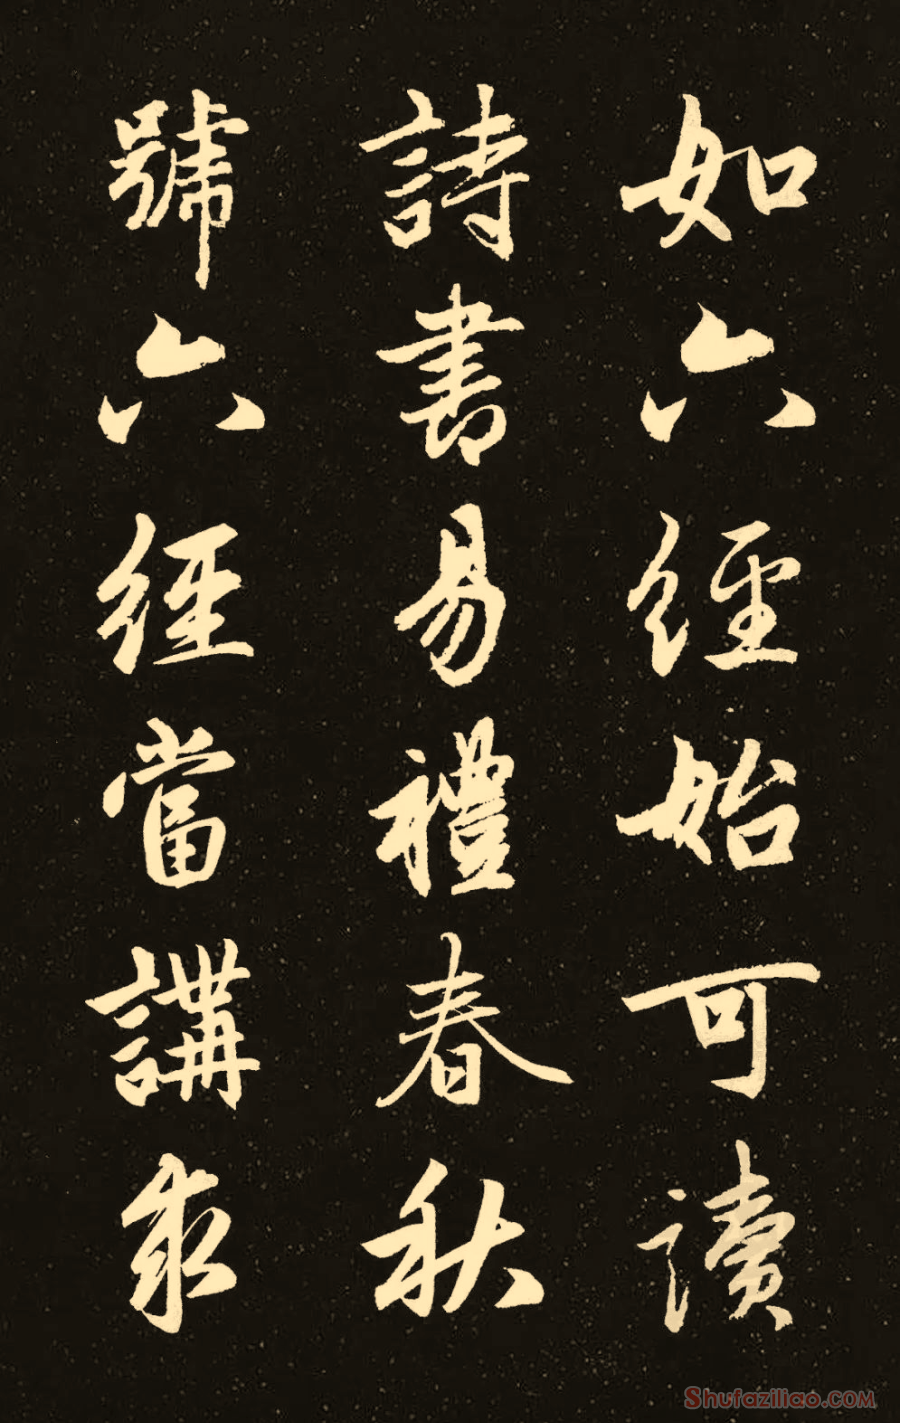 如六經始可讀
詩書易禮春秋
號六經當講求
Shufaziliao.COM